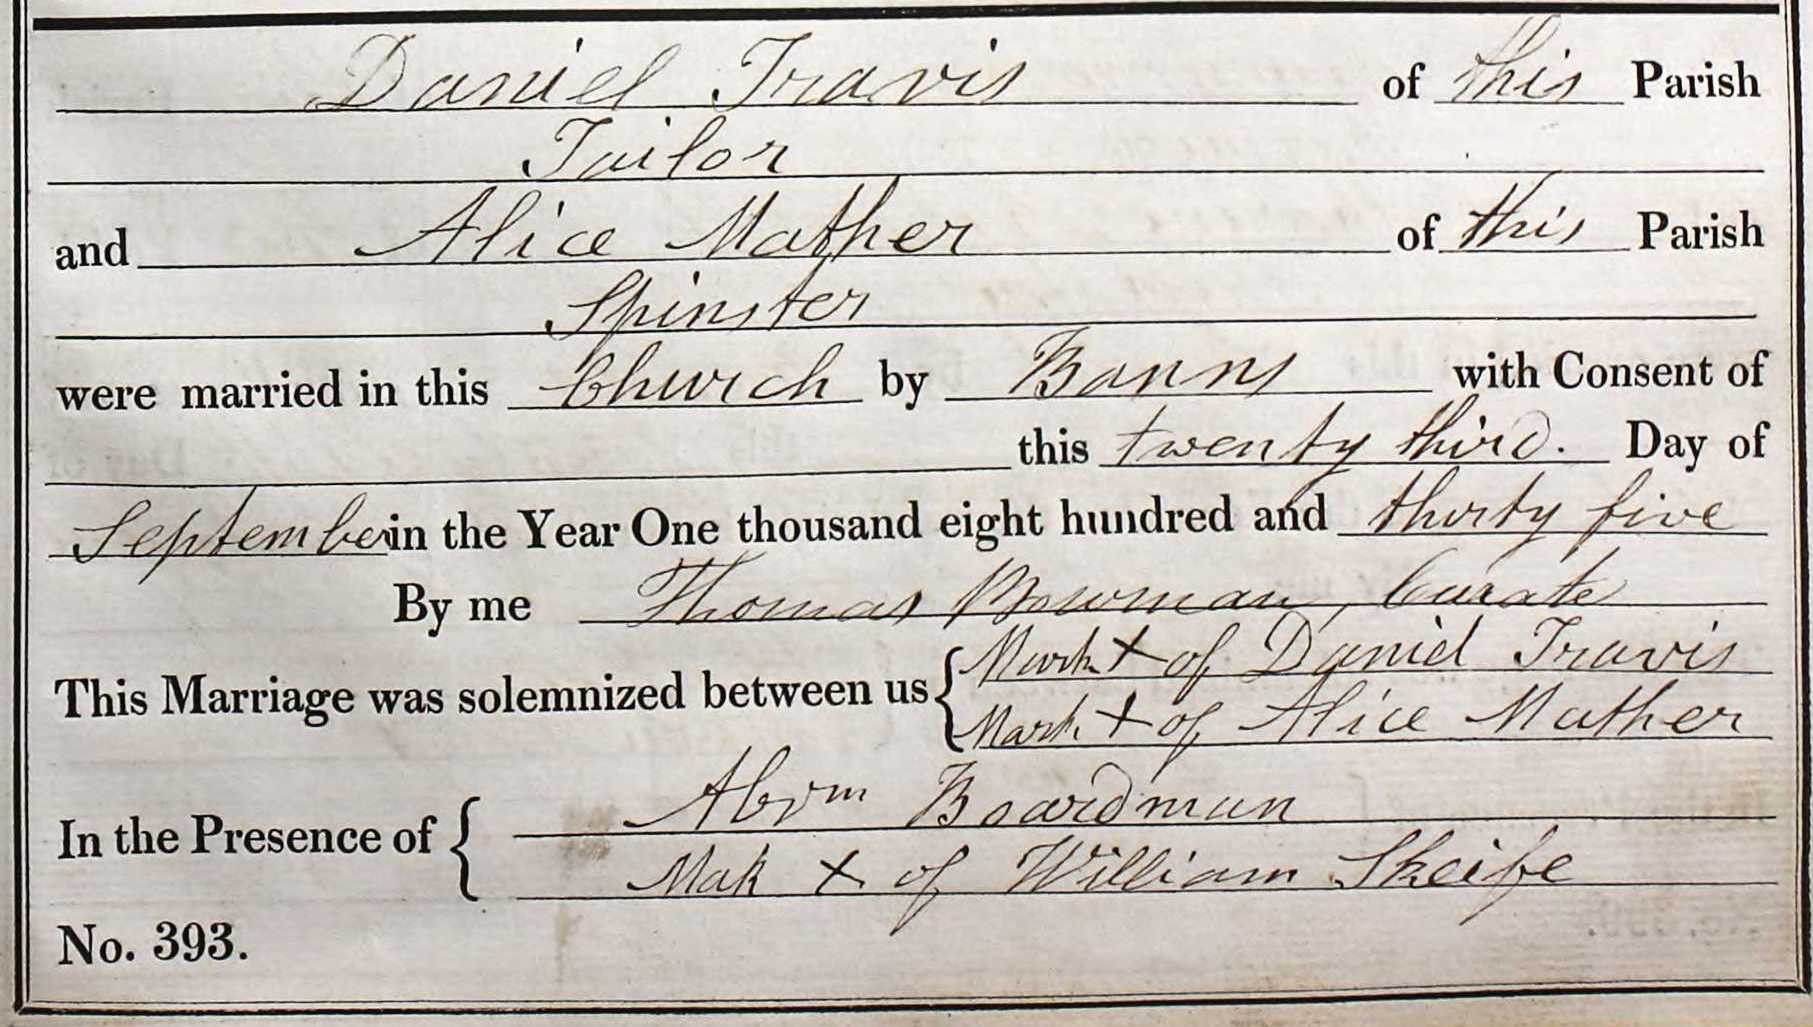 Daniel Travis of this Parish
Tailor
and Alice Mather of this Parish
Spinster
were married in this Church by Banns with Consent of
this twenty third. Day of
September in the Year One thousand eight hundred and thirty five
By me Thomas Bowman, Curate
This Marriage was solemnized between us { Mark X of Daniel Travis
Mark X of Alice Mather
In the Presence of { Abrm Boardman
Mak X of William Skeife
No. 393.